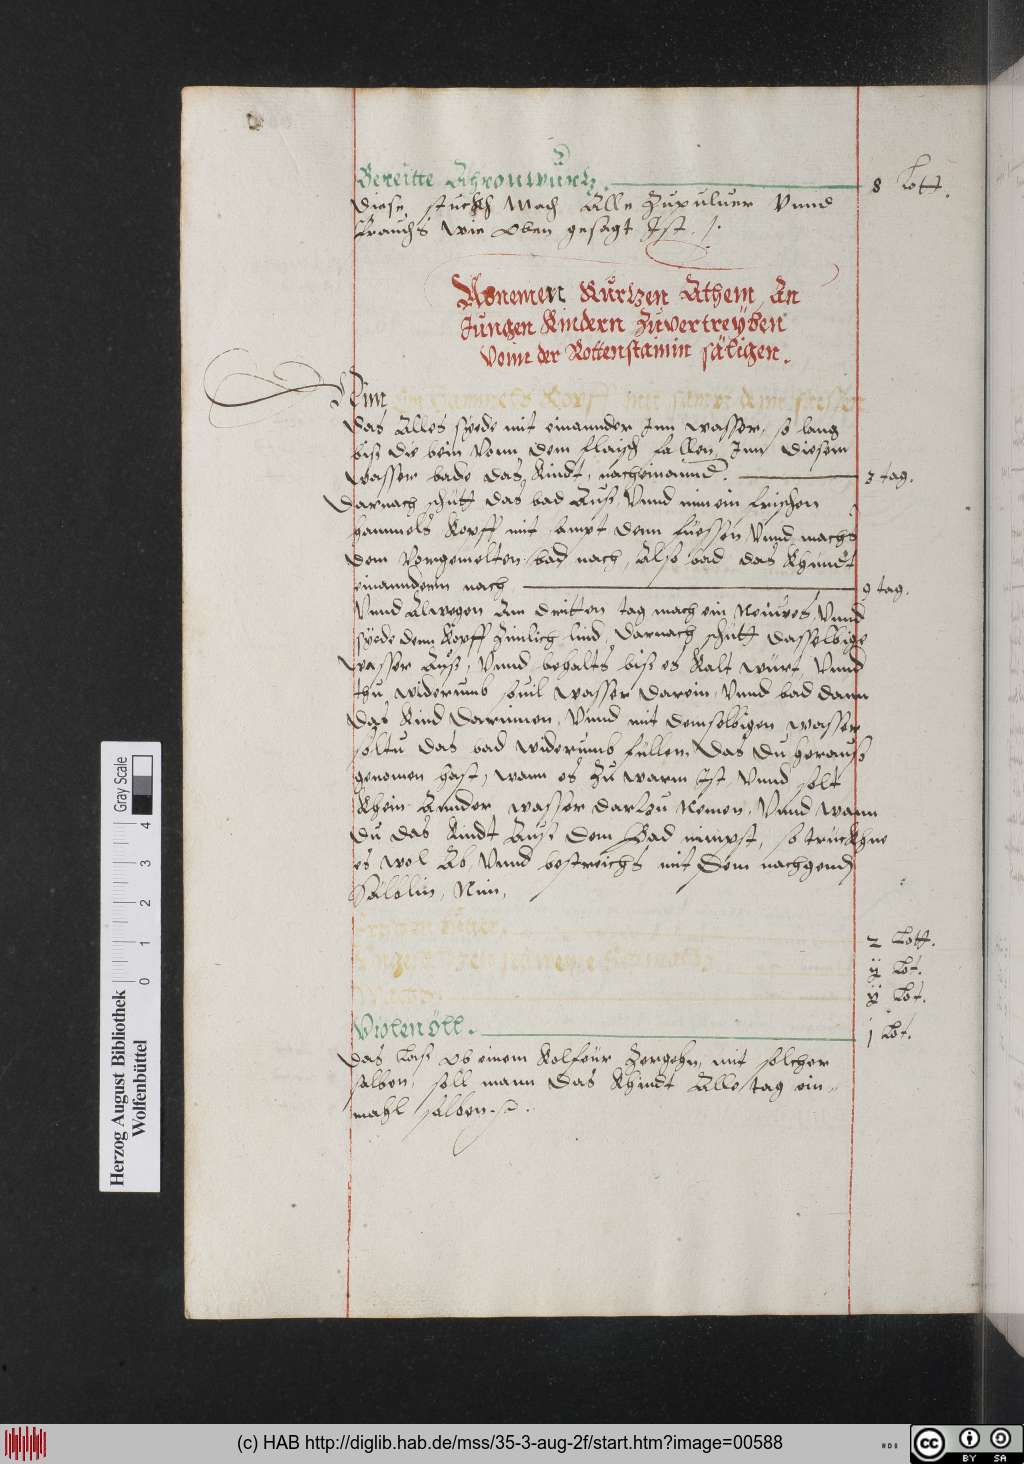 Bereitte Ahronwurtz. 8 Lott.
Diese stuckh Mach Alle Zupuluer Vnnd
brauchs wie oben gesagt Ist.
Abnemen Kurtzen Athem An
Jungen Kindern Zuvertreyben
Vonn der Rottenstainin säligen.
Nim ein Hammels Kopff mit sampt denn fiessen
das Alles syede mit einannder Inn wasser, so lang
biß die bein Vonn dem flaisch fallen, Inn diesem
wasser bade das Kindt, nacheinannd. 3 tag.
Darnach schütt das bad Auß, Vnnd nim ein frischen
hammels Kopff mit sampt denn fuessen, Vnnd machs
dem Vorgemelten bad nach, Also bad das Khindt
einanndern nach 9 tag.
Vnnd Alwegen Am dritten tag mach ein Neuwes, Vnnd
syede denn Kopff Zimlich lind, darnach schütt dasselbige
wasser Auß, Vnnd behalts biß es Kalt würt Vnnd
thu widerumb souil wasser darein, Vnnd bad dann
das Kind darinnen, Vnnd mit demselbigen wasser
soltu das bad widerumb fullen, das du herauß
genomen hast, wann es Zu warm Ist Vnnd solt
Khein Annder wasser dartzu Nemen, Vnnd wann
du das Kindt Auß dem Bad nimpst, so truckhne
es wol Ab, Vnnd bestreichs mit Dem nachgend
Sälblin, Nim,
2 Lott.
ij Lot.
ij Lot.
Violen öll. j Lot.
das Laß ob einem Kolfeur Zergehn, mit solcher
salben, soll mann das Khindt Alle tag ein
mahl salben.
Herzog August Bibliothek
Wolfenbüttel
Gray Scale
0 1 2 3 4
(c) HAB http://diglib.hab.de/mss/35-3-aug-2f/start.htm?image=00588
cc BY SA